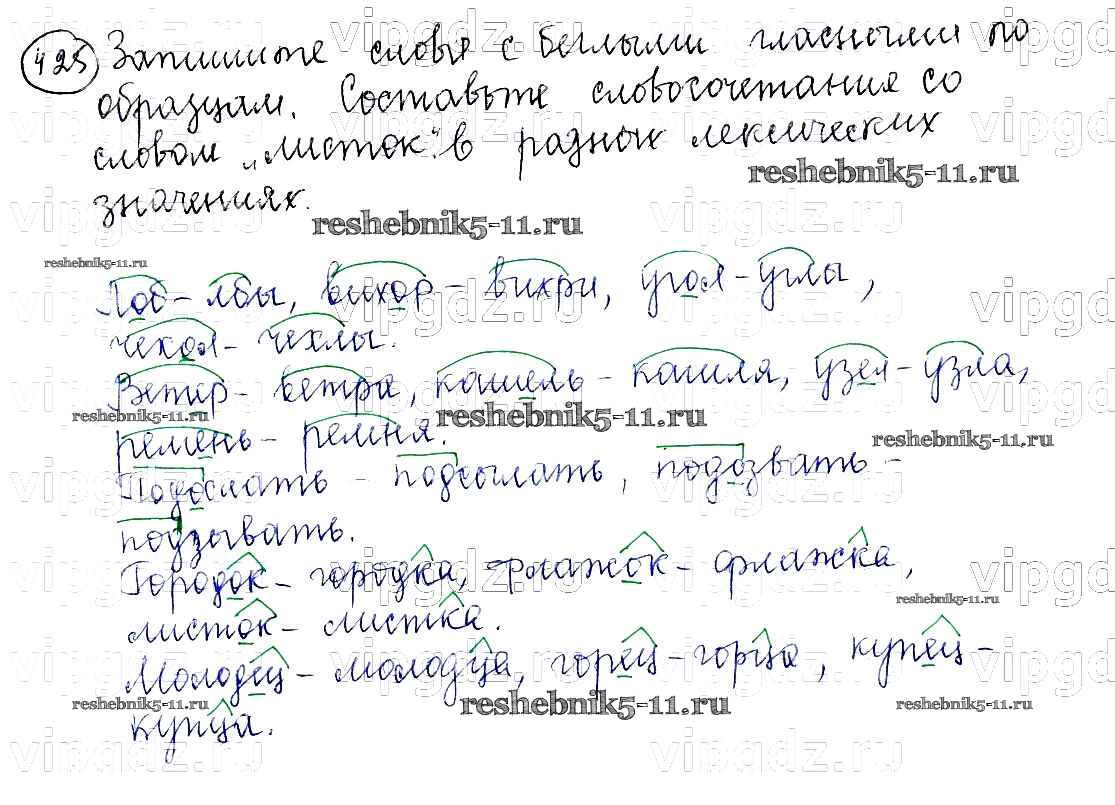 425 Запишите слова с беглыми гласными по
образцам. Составьте словосочетания со
словом „листок“ в разных лексических
значениях.
reshebnik5-11.ru
reshebnik5-11.ru
reshebnik5-11.ru
Лоб – лбы, вихор – вихри, угол – углы,
чехол – чехлы.
Ветер – ветра, кашель – кашля, узел – узла,
reshebnik5-11.ru
reshebnik5-11.ru
reshebnik5-11.ru
ремень – ремня.
Подослать – подсылать, подозвать –
подзывать.
Городок – городка, флажок – флажка,
reshebnik5-11.ru
листок – листка.
Молодец – молодца, горец – горца, купец –
reshebnik5-11.ru
reshebnik5-11.ru
reshebnik5-11.ru
купца.
vipgdz.ru